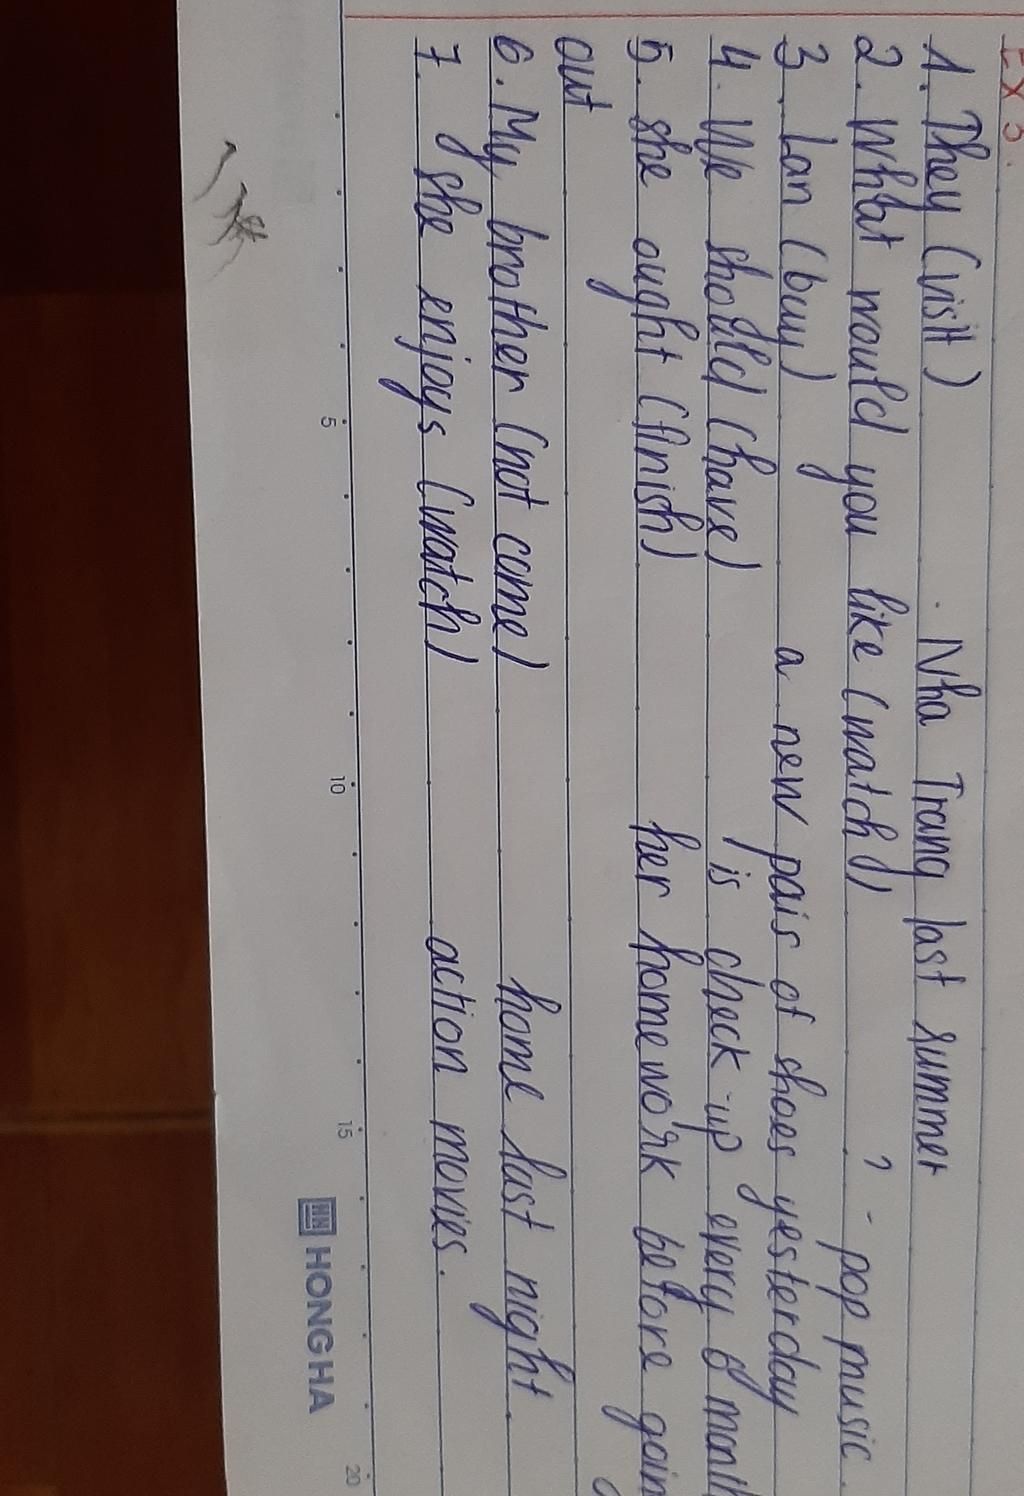 EX 5.
1. They (visit) Nha Trang last summer
2. What would you like (watch) ? - pop music.
3. Lan (buy) a new pais of shoes yesterday
4. We should (have) is check-up every 6 month
5. she ought (finish) her homework before goin
out
6. My brother (not come) home last night.
7. she enjoys (watch) action movies.
5 10 15 20
HH HONG HA